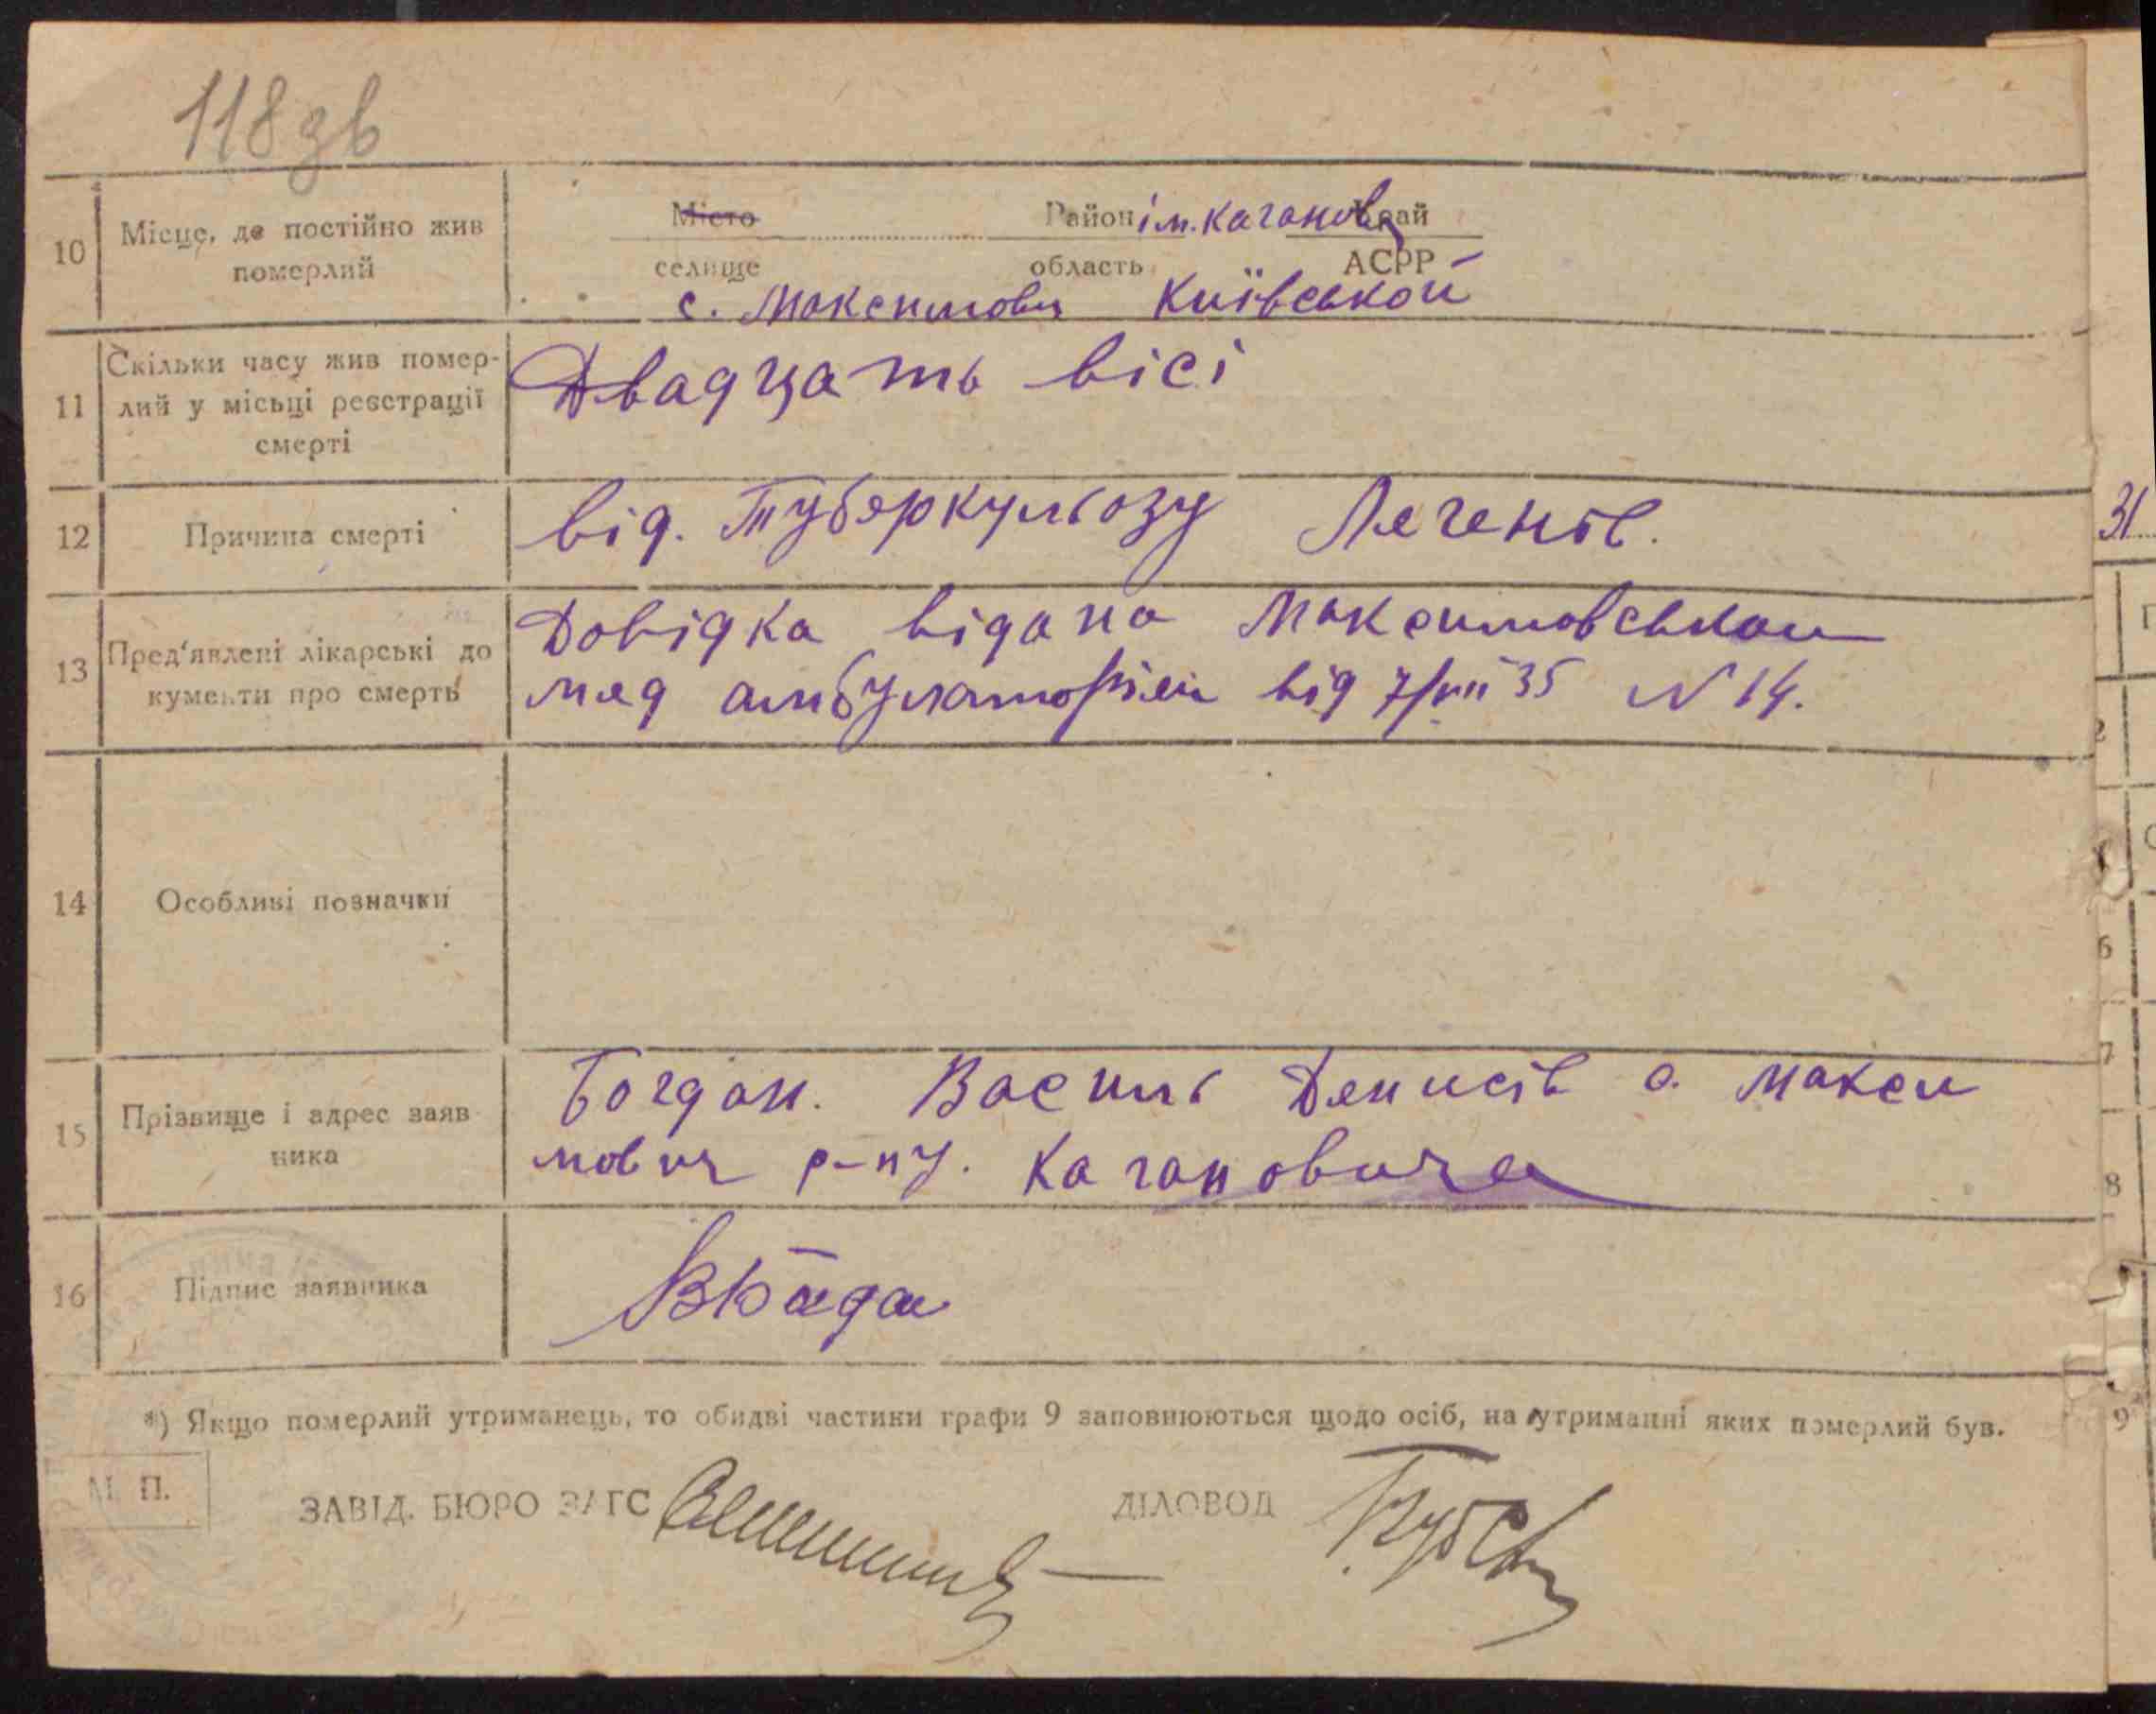 118 зв
10 Місце, де постійно жив померлий
Місто Район ім. Кагановича Край
селище область АСРР
с. Максимович Київськой
11 Скільки часу жив помер-
лий у місьці реєстрації
смерті
Двадцать вісі
12 Причина смерті
від. Туберкульозу Легенів.
13 Пред'явлені лікарські до
кументи про смерть
Довідка відана Максимовськой
мед амбулаторіеи від 7/VII 35 N 14.
14 Особливі позначки
15 Прізвище і адрес заяв
ника
Богдан. Василь Денисів с. Макси
мович р-ну. Кагановича
16 Підпис заявника
*) Якщо померлий утриманець, то обидві частини графи 9 заповнюються щодо осіб, на утриманні яких померлий був.
М. П.
ЗАВІД. БЮРО ЗАГС ДІЛОВОД
31
2
6
7
8
9